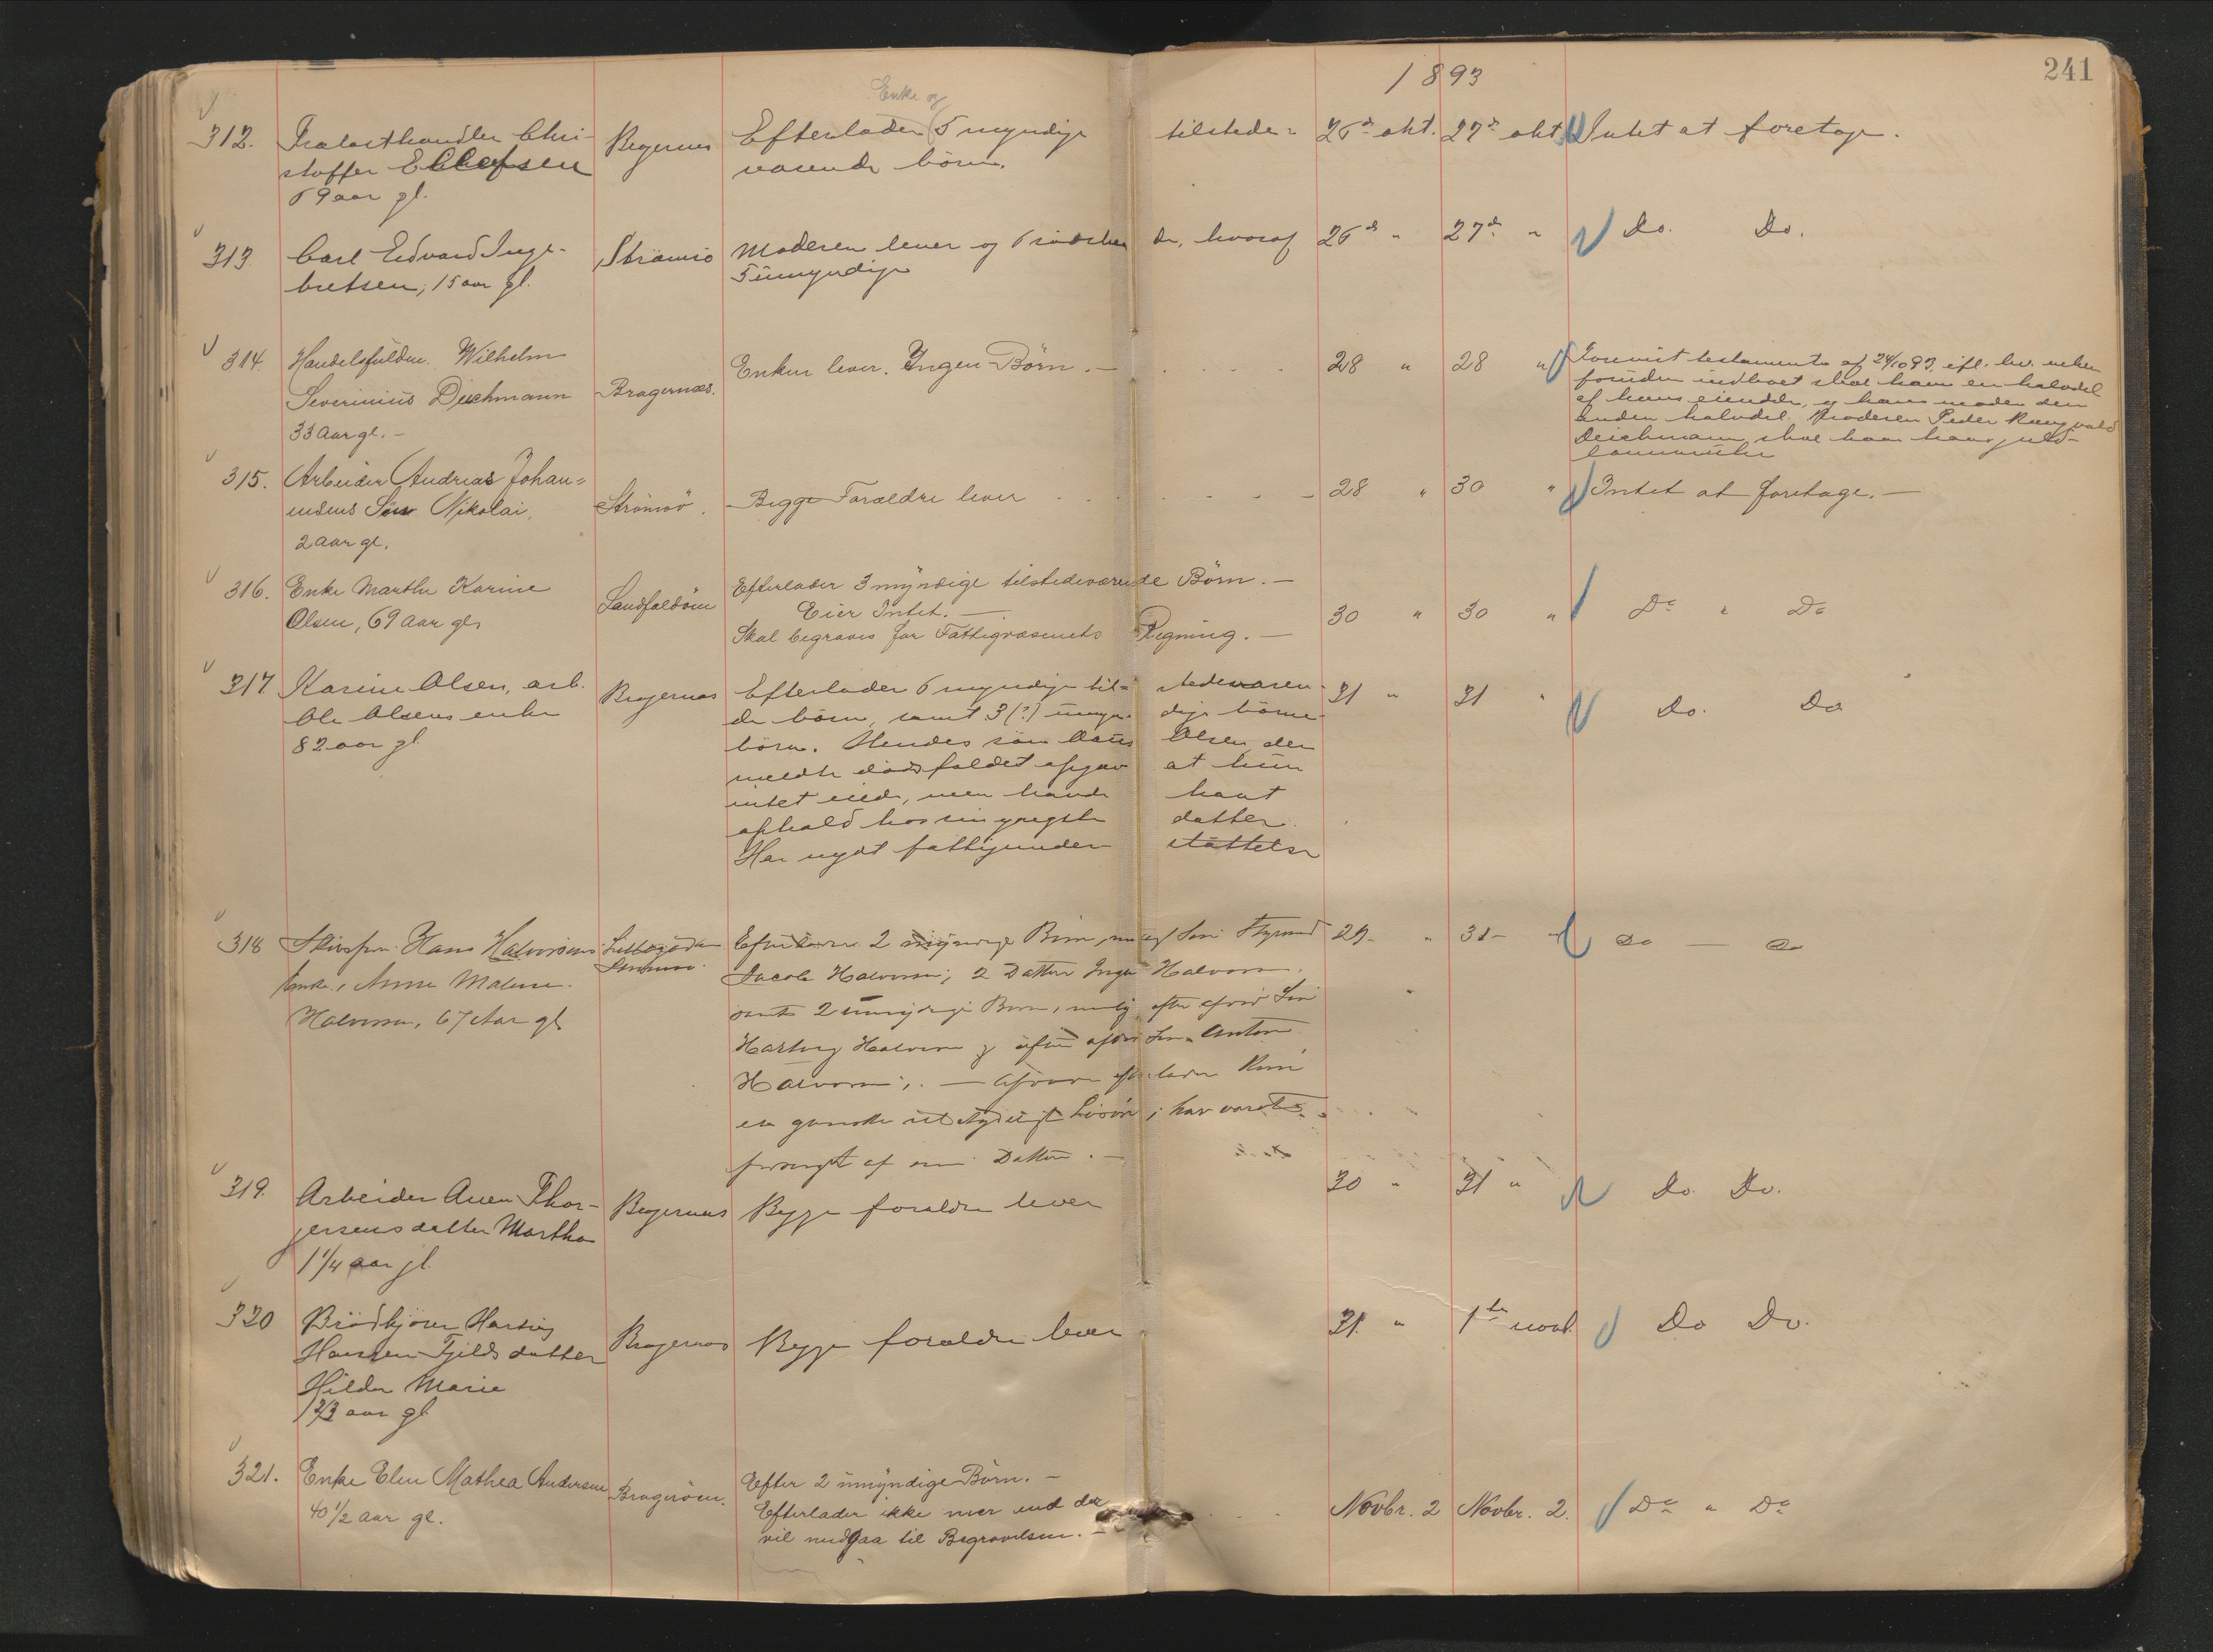 1893
241
Enke og
312. Chri-
stoffer Ellefsen
69 aar gl.
Bragernes
Efterlader 5 myndige tilstede=
værende börn.
26de okt. 27de okt. Intet at foretage.
313. Carl Edvard Inge-
bretsen, 15 aar gl.
Strömsö
Moderen lever og 6 södsken de, hvoraf
5 umyndige
26de " 27de " Do. Do.
314. Handelsfuldm. Wilhelm
Severinius Deichmann
33 Aar gl. -
Bragernæs.
Enken lever. Ingen Börn. -
28 " 28 "
Forevist testamente af 24/10 93, efl. hv. enken
foruden indboet skal have en halvdel
af hans eiendele, og hans moder den
anden halvdel. Broderen Peder
Deichmann skal have hans guld-
315. Arbeider Andreas Johan=
nsens Sön Nikolai,
2 aar gl.
Strömsö.
Begge Forældre lever
28 " 30 " Intet at foretage. -
316. Enke Marthe Karine
Olsen, 69 Aar gl.
Landfaldöen
Efterlader 3 myndige tilstedeværende Börn. -
Eier Intet. -
Skal begraves for Fattigvæsenets Regning. -
30 " 30 " Do " Do
317 Karine Olsen, arb.
Ole Olsens enke
82 aar gl
Bragernæs
Efterlader 6 myndige til= stedeværen-
de börn, samt 3 (?) umyn- dige börne-
börn. Hendes sön Olsen, der
meldte dödsfaldet opgav at hun
intet eiede, men havde havt
ophold hos sin yngste datter.
Har nydt fattigunder- støttelse
31 " 31 " Do. Do
318 Hans Halvorsens
Enke, Anne Malene
Halvorsen, 67 Aar gl
Efterlader 2 myndige Börn, Sön Styrmand
Jacob Halvorsen; 2 Datter Halvorsen
samt 2 umyndige Börn, efter Sön
Hartvig Halvorsen og Sön Anton
Halvorsen; -
en ganske ; har været
forsörget af Datter. -
29 - " 31 - " do - do
319. Arbeider Aven Thor-
gersens datter Martha
1 1/4 aar gl.
Bragernæs
Begge forældre lever
30 " 31 " Do. Do.
320 Brödkjörer Hartvig
Hansen Fjelds datter
Hilda Marie
1 2/3 aar gl
Bragernæs
Begge forældre lever
31. " 1ste novb. Do Do.
321. Enke Elen Mathea Andersen
40 1/2 Aar gl.
Bragerøen.
Efter 2 umyndige Börn. -
Efterlader ikke mer end der
vil medgaa til Begravelsen. -
Novbr. 2 Novbr. 2. Do " Do